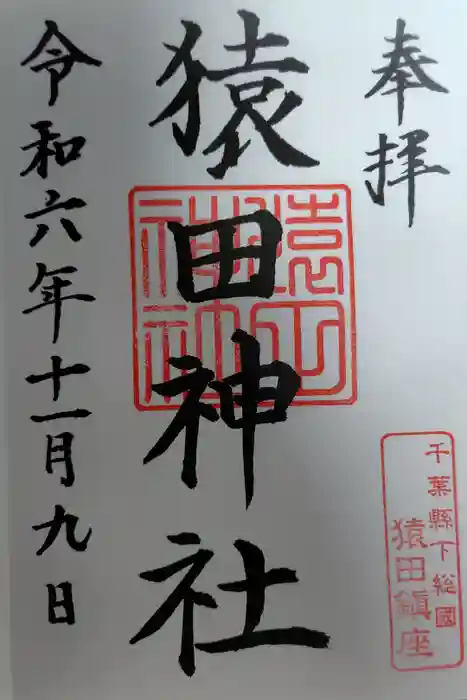 奉拝
千葉縣下総國
猿田鎮座
猿田神社
猿田神社
令和六年十一月九日